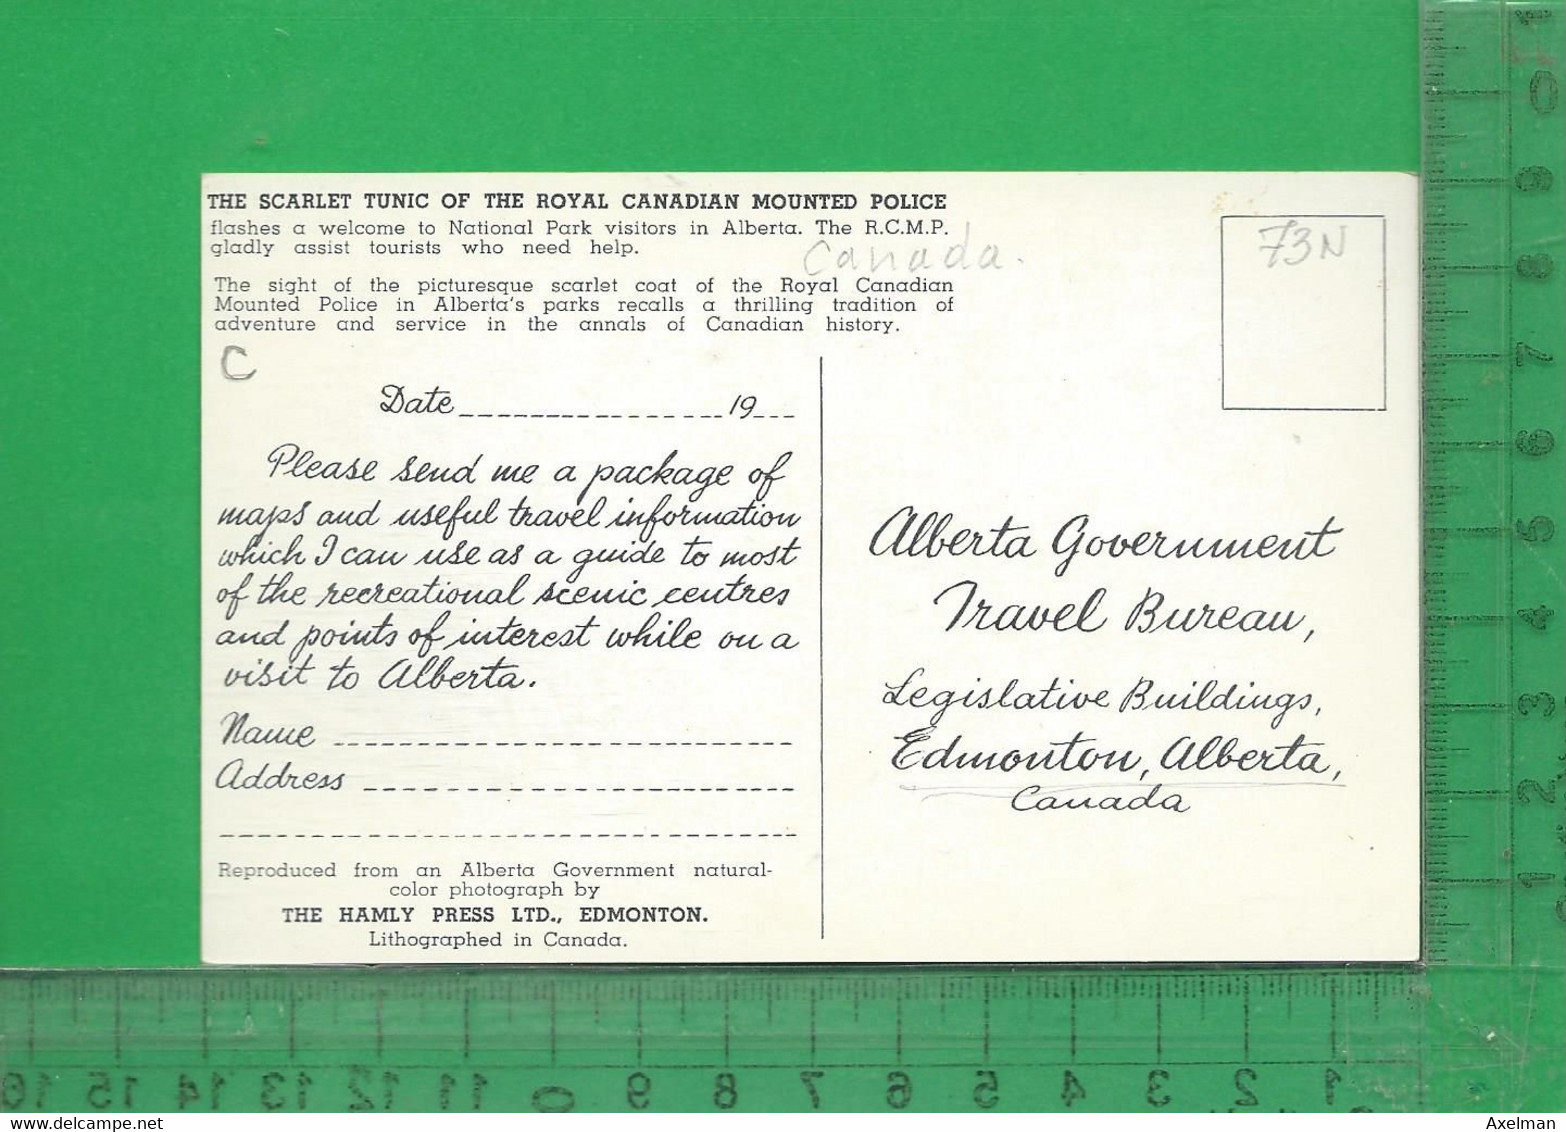 THE SCARLET TUNIC OF THE ROYAL CANADIAN MOUNTED POLICE
flashes a welcome to National Park visitors in Alberta. The R.C.M.P.
gladly assist tourists who need help.
Canada.
The sight of the picturesque scarlet coat of the Royal Canadian
Mounted Police in Alberta's parks recalls a thrilling tradition of
adventure and service in the annals of Canadian history.
C
Date_______________19___
Please send me a package of
maps and useful travel information
which I can use as a guide to most
of the recreational scenic centres
and points of interest while on a
visit to Alberta.
Name
Address
Reproduced from an Alberta Government natural-
color photograph by
THE HAMLY PRESS LTD., EDMONTON.
Lithographed in Canada.
73N
Alberta Government
Travel Bureau,
Legislative Buildings,
Edmonton, Alberta,
Canada
0
9
8
7
6
5
4
3
2
1
16 15 14 13 12 11 0 9 8 7 6 5 4 3 2 1
www.delcampe.net
Axelman